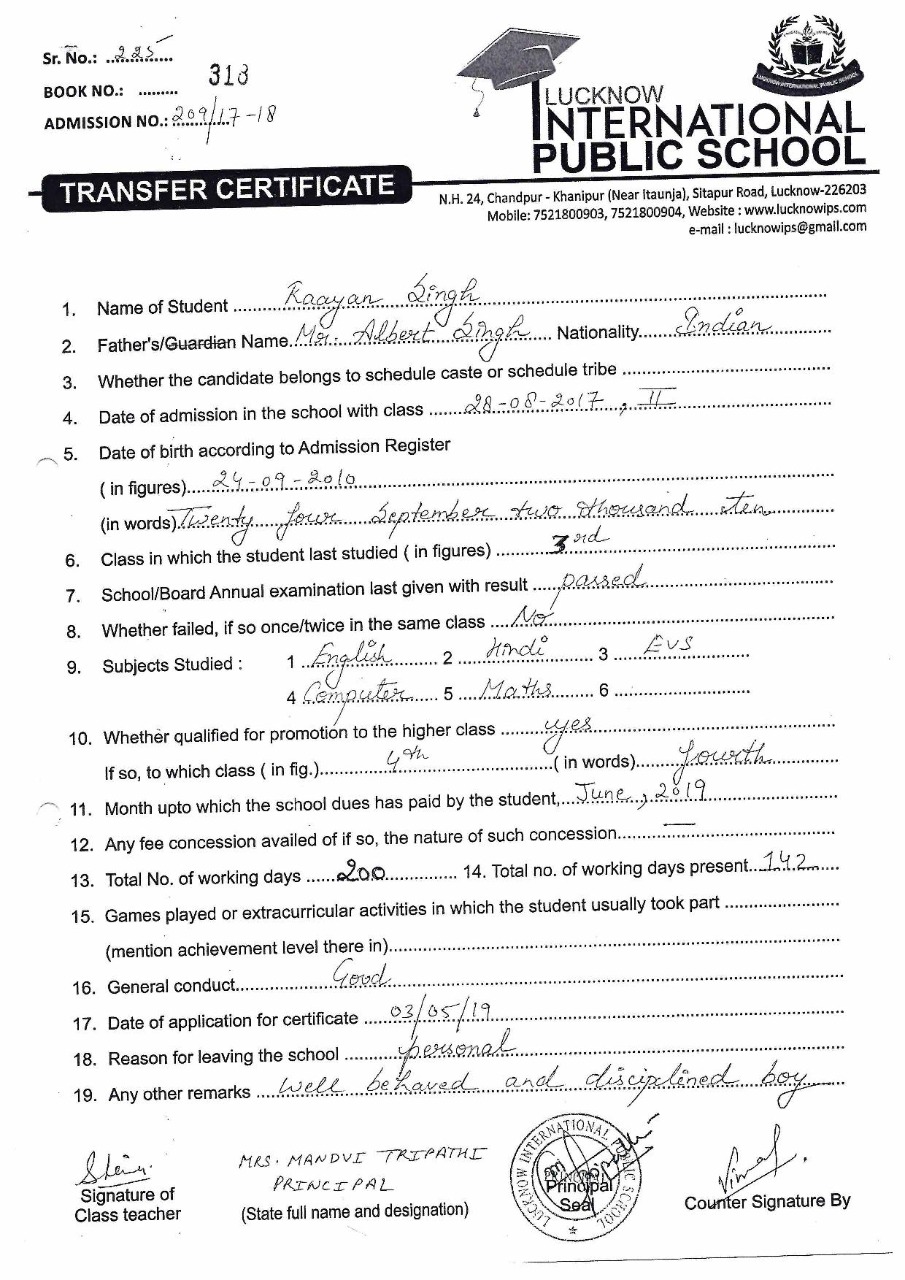 Sr. No.: ..225......
BOOK NO.: ......... 318
ADMISSION NO.: 209/17-18
LUCKNOW INTERNATIONAL PUBLIC SCHOOL
LUCKNOW
INTERNATIONAL
PUBLIC SCHOOL
TRANSFER CERTIFICATE
N.H. 24, Chandpur - Khanipur (Near Itaunja), Sitapur Road, Lucknow-226203
Mobile: 7521800903, 7521800904, Website : www.lucknowips.com
e-mail : lucknowips@gmail.com
1. Name of Student Raayan Singh
2. Father's/Guardian Name Mr. Albert Singh Nationality Indian
3. Whether the candidate belongs to schedule caste or schedule tribe
4. Date of admission in the school with class 28-08-2017, II
5. Date of birth according to Admission Register
( in figures) 24-09-2010
(in words) Twenty four September two thousand ten
6. Class in which the student last studied ( in figures) 3rd
7. School/Board Annual examination last given with result passed
8. Whether failed, if so once/twice in the same class No
9. Subjects Studied : 1 English 2 Hindi 3 EVS
4 Computer 5 Maths 6
10. Whether qualified for promotion to the higher class yes
If so, to which class ( in fig.) 4th ( in words) fourth
11. Month upto which the school dues has paid by the student, June, 2019
12. Any fee concession availed of if so, the nature of such concession —
13. Total No. of working days 200 14. Total no. of working days present 142
15. Games played or extracurricular activities in which the student usually took part
(mention achievement level there in)
16. General conduct Good
17. Date of application for certificate 03/05/19
18. Reason for leaving the school personal
19. Any other remarks well behaved and disciplined boy
MRS. MANDVI TRIPATHI
PRINCIPAL
Signature of
Class teacher
(State full name and designation)
LUCKNOW INTERNATIONAL PUBLIC SCHOOL
Principal
Seal
Vimal
Counter Signature By